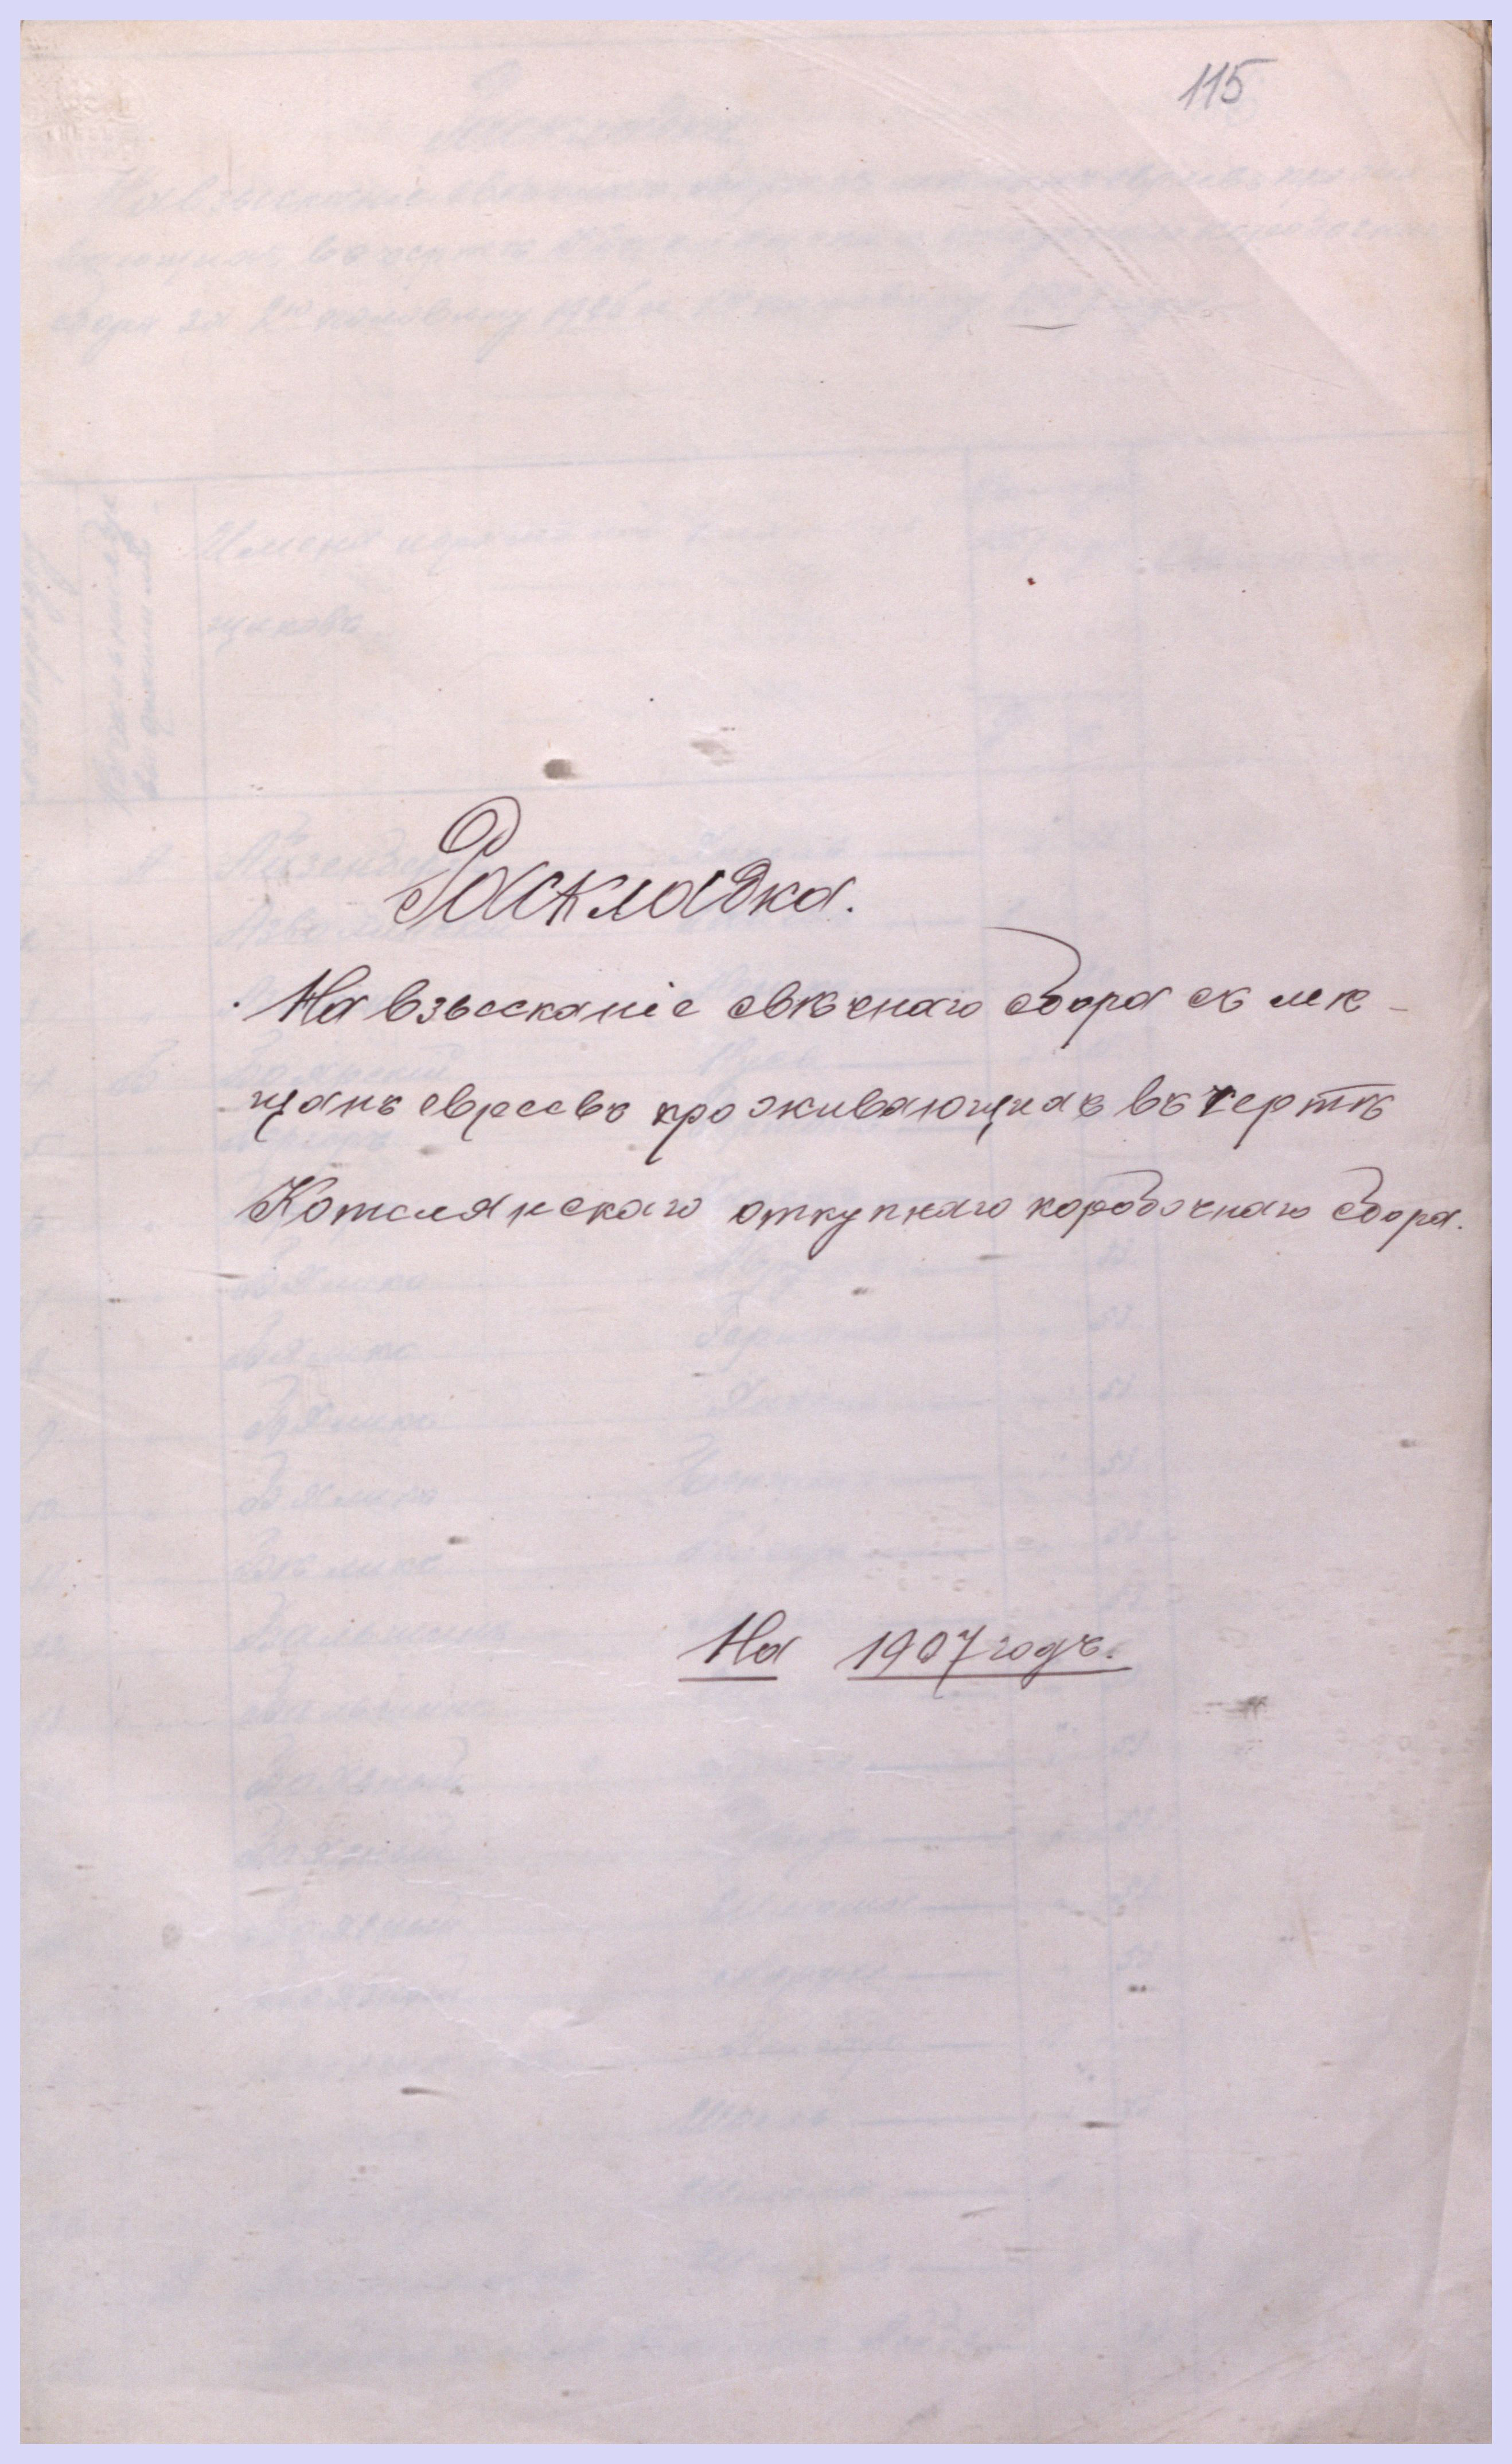 115
Раскладка.
На взысканіе свѣчнаго сбора съ мѣ-
щанъ евреевъ проживающихъ въ чертѣ
Котелянскаго откупнаго коробочнаго сбора.
На 1907 годъ.